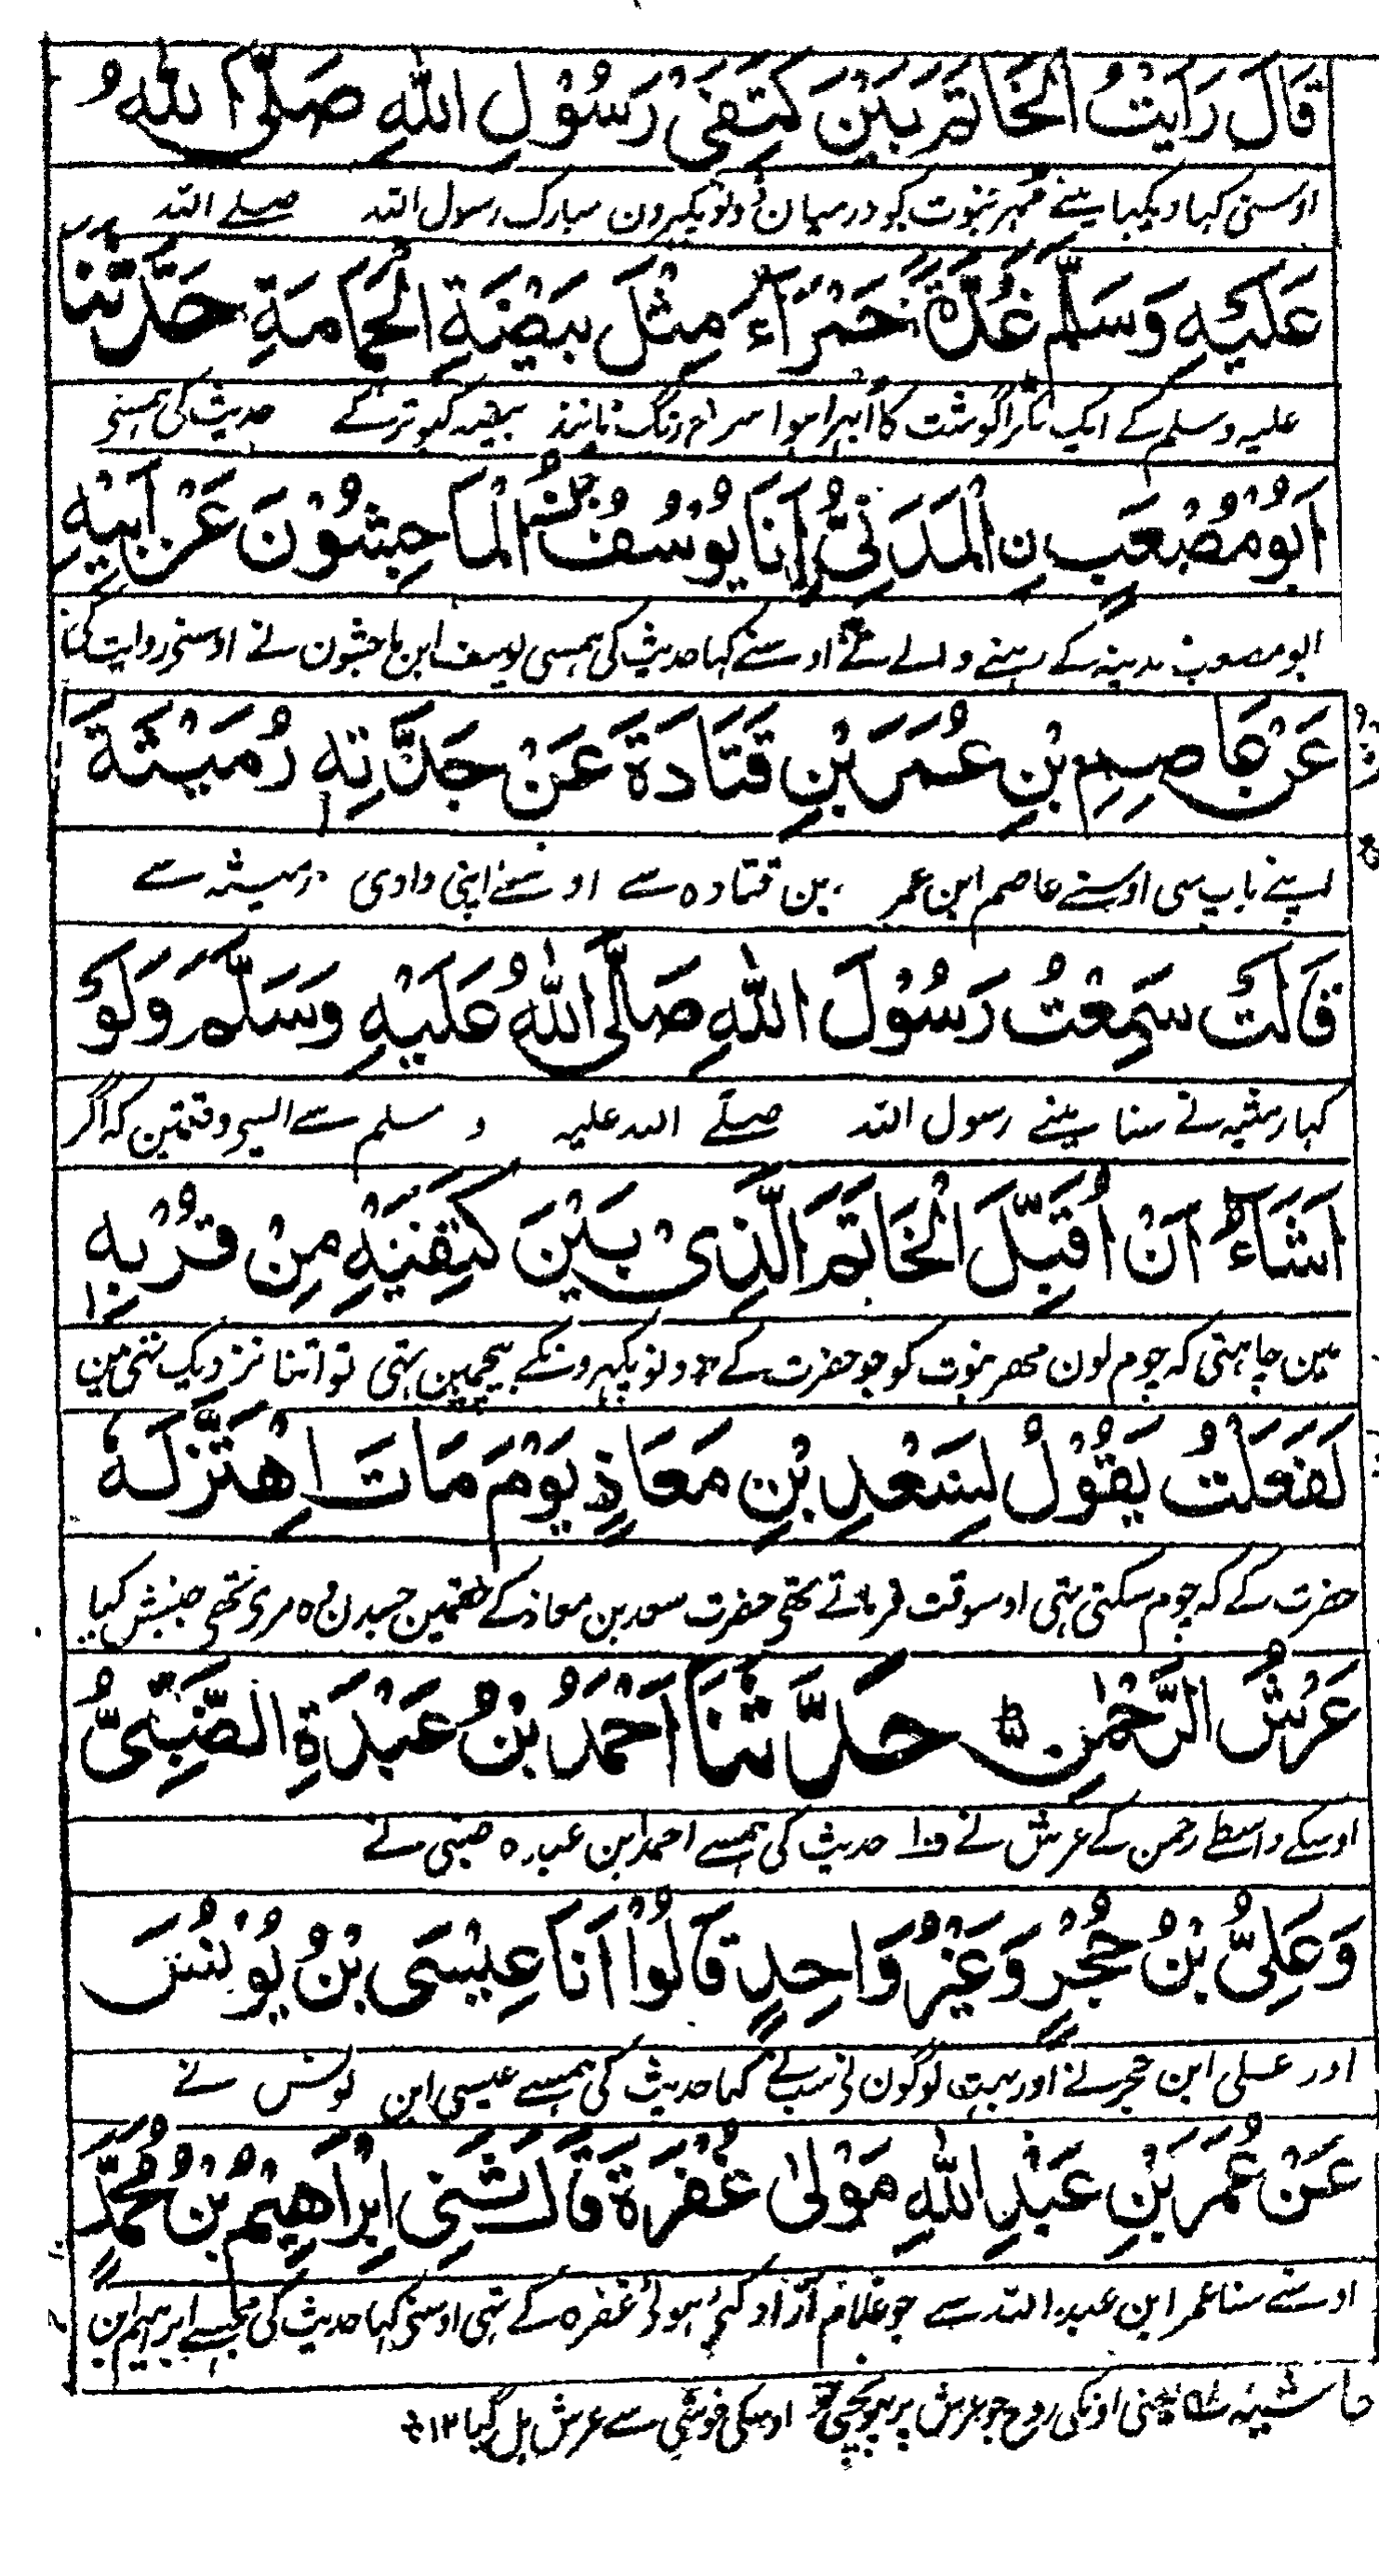 قَالَ رَاَيْتُ الْخَاتَمَ بَيْنَ كَتِفَيْ رَسُوْلِ اللهِ صَلَّى اللهُ
اوسنی کہا دیکہا مینے مُہر نبوت کو درمیان دونو پکہرون مبارک رسول اللہ صلے اللہ
عَلَيْهِ وَسَلَّمَ غُدَّةً حَمْرَاءَ مِثْلَ بَيْضَةِ الْحَمَامَةِ حَدَّثَنَا
علیہ وسلم کے ایک ٹکرا گوشت کا اُبہرا ہوا سرخ رنگ مانند بیضہ کبوتر کے حدیث کی ہمسے
اَبُوْ مُصْعَبِ نِ الْمَدَنِيُّ اَنَا يُوْسُفُ بْنُ الْمَاجِشُوْنَ عَنْ اَبِيْهِ
ابو مصعب مدینہ کے رہنے والے نے اوسنے کہا حدیث کی ہمسی یوسف ابن ماجشون نے اوسنے روایت کی
عَنْ عَاصِمِ بْنِ عُمَرَ بْنِ قَتَادَةَ عَنْ جَدَّتِهٖ رُمَيْثَةَ
اپنے باپ سی اوسنے عاصم ابن عمر بن قتادہ سے اوسنے اپنی دادی رمیثہ سے
قَالَتْ سَمِعْتُ رَسُوْلَ اللهِ صَلَّى اللهُ عَلَيْهِ وَسَلَّمَ وَلَوْ
کہا رمثیہ نے سنا مینے رسول اللہ صلے اللہ علیہ و سلم سے ایسے وقتمین کہ اگر
اَشَاءُ اَنْ اُقَبِّلَ الْخَاتَمَ الَّذِىْ بَيْنَ كَتِفَيْهِ مِنْ قُرْبِهٖ
مین چاہتی کہ چوم لون مھر نبوت کو جو حضرت کے دونو پکہرونکے بیچمین تہی تو اتنا نزدیک تھی مین
لَفَعَلْتُ يَقُوْلُ لِسَعْدِ بْنِ مَعَاذٍ يَوْمَ مَاتَ اِهْتَزَّ لَهٗ
حضرت کے کہ چوم سکتی تہی اوسوقت فرماتے تھی حضرت سعد بن معاذ کے حقمین جسدن وہ مری تھی جنبش کیا
عَرْشُ الرَّحْمٰنِ ط حَدَّثَنَا اَحْمَدُ بْنُ عَبْدَةَ الضَّبِّيُّ
اوسکے واسطے رحمن کے عرش نے ف۱ حدیث کی ہمسے احمد ابن عبدہ ضبی نے
وَعَلِيُّ بْنُ حُجْرٍ وَغَيْرُ وَاحِدٍ قَالُوْا اَنَا عِيْسَى بْنُ يُوْنُسَ
اور علی ابن حجر نے اور بہت لوگون نے سب نے کہا حدیث کی ہمسے عیسی ابن یونس نے
عَنْ عُمَرَ بْنِ عَبْدِ اللهِ مَوْلٰى غُفْرَةَ قَالَ ثَنِى اِبْرَاهِيْمُ بْنُ مُحَمَّدٍ
اوسنے سنا عمر ابن عبد اللہ سے جو غلام آزاد کئے ہوئے غفرہ کے تہی اوسنے کہا حدیث کی مجہسے ابراہیم ابن
حاشیہ یعنی اونکی روح جو عرش پر پہونچی تو اوسکی خوشی سے عرش ہل گیا ۱۲